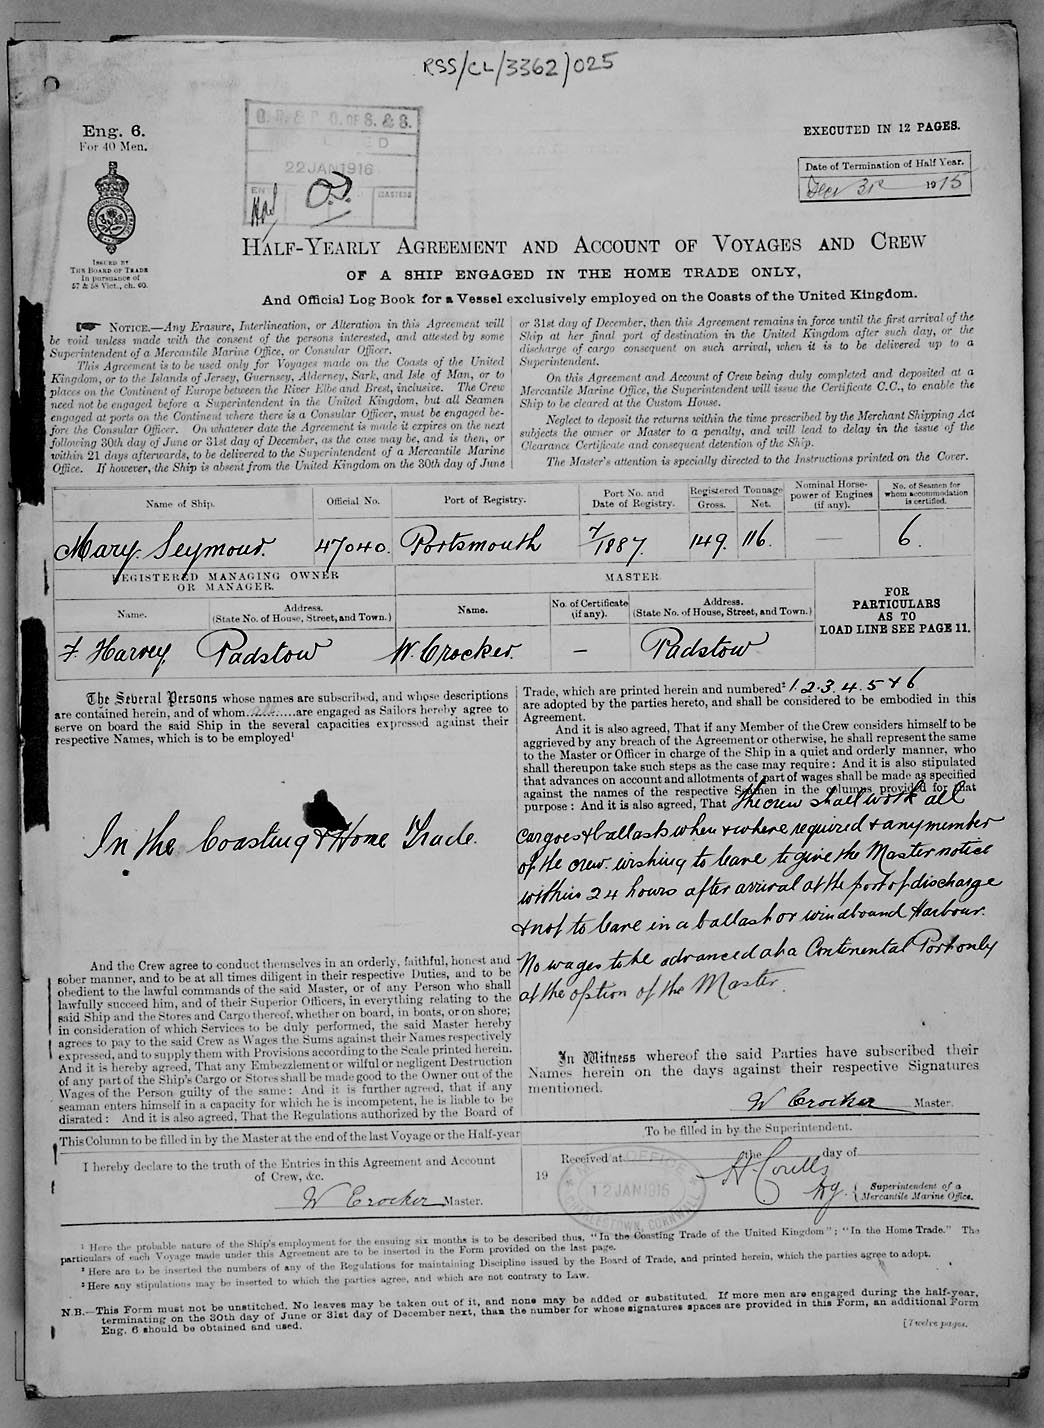 RSS/CL/3362/025
Eng. 6.
For 40 Men.
ISSUED BY
THE BOARD OF TRADE
In pursuance of
57 & 58 Vict., ch. 60.
OF S. & S.
22 JAN 1916
EXECUTED IN 12 PAGES.
Date of Termination of Half Year.
Dec 31st 1915
HALF-YEARLY AGREEMENT AND ACCOUNT OF VOYAGES AND CREW
OF A SHIP ENGAGED IN THE HOME TRADE ONLY,
And Official Log Book for a Vessel exclusively employed on the Coasts of the United Kingdom.
NOTICE.—Any Erasure, Interlineation, or Alteration in this Agreement will
be void unless made with the consent of the persons interested, and attested by some
Superintendent of a Mercantile Marine Office, or Consular Officer.
This Agreement is to be used only for Voyages made on the Coasts of the United
Kingdom, or to the Islands of Jersey, Guernsey, Alderney, Sark, and Isle of Man, or to
places on the Continent of Europe between the River Elbe and Brest, inclusive. The Crew
need not be engaged before a Superintendent in the United Kingdom, but all Seamen
engaged at ports on the Continent where there is a Consular Officer, must be engaged be-
fore the Consular Officer. On whatever date the Agreement is made it expires on the next
following 30th day of June or 31st day of December, as the case may be, and is then, or
within 21 days afterwards, to be delivered to the Superintendent of a Mercantile Marine
Office. If however, the Ship is absent from the United Kingdom on the 30th day of June
or 31st day of December, then this Agreement remains in force until the first arrival of the
Ship at her final port of destination in the United Kingdom after such day, or the
discharge of cargo consequent on such arrival, when it is to be delivered up to a
Superintendent.
On this Agreement and Account of Crew being duly completed and deposited at a
Mercantile Marine Office, the Superintendent will issue the Certificate C.C., to enable the
Ship to be cleared at the Custom House.
Neglect to deposit the returns within the time prescribed by the Merchant Shipping Act
subjects the owner or Master to a penalty, and will lead to delay in the issue of the
Clearance Certificate and consequent detention of the Ship.
The Master's attention is specially directed to the Instructions printed on the Cover.
Name of Ship. Official No. Port of Registry. Port No. and Date of Registry. Registered Tonnage Gross. Net. Nominal Horse-power of Engines (if any). No. of Seamen for whom accommodation is certified.
Mary Seymour. 47040. Portsmouth 7/1887. 149. 116. — 6.
REGISTERED MANAGING OWNER OR MANAGER. MASTER.
Name. Address. (State No. of House, Street, and Town.) Name. No. of Certificate (if any). Address. (State No. of House, Street, and Town.)
F. Harvey. Padstow W. Crocker. — Padstow
FOR
PARTICULARS
AS TO
LOAD LINE SEE PAGE 11.
The Several Persons whose names are subscribed, and whose descriptions
are contained herein, and of whom all are engaged as Sailors hereby agree to
serve on board the said Ship in the several capacities expressed against their
respective Names, which is to be employed¹
In the Coasting & Home Trade.
And the Crew agree to conduct themselves in an orderly, faithful, honest and
sober manner, and to be at all times diligent in their respective Duties, and to be
obedient to the lawful commands of the said Master, or of any Person who shall
lawfully succeed him, and of their Superior Officers, in everything relating to the
said Ship and the Stores and Cargo thereof, whether on board, in boats, or on shore;
in consideration of which Services to be duly performed, the said Master hereby
agrees to pay to the said Crew as Wages the Sums against their Names respectively
expressed, and to supply them with Provisions according to the Scale printed herein.
And it is hereby agreed, That any Embezzlement or wilful or negligent Destruction
of any part of the Ship's Cargo or Stores shall be made good to the Owner out of the
Wages of the Person guilty of the same: And it is further agreed, that if any
seaman enters himself in a capacity for which he is incompetent, he is liable to be
disrated: And it is also agreed, That the Regulations authorized by the Board of
Trade, which are printed herein and numbered² 1. 2. 3. 4. 5 & 6
are adopted by the parties hereto, and shall be considered to be embodied in this
Agreement.
And it is also agreed, That if any Member of the Crew considers himself to be
aggrieved by any breach of the Agreement or otherwise, he shall represent the same
to the Master or Officer in charge of the Ship in a quiet and orderly manner, who
shall thereupon take such steps as the case may require: And it is also stipulated
that advances on account and allotments of part of wages shall be made as specified
against the names of the respective Seamen in the columns provided for that
purpose: And it is also agreed, That the crew shall work all
cargoes & ballasts when & where required & any member
of the crew wishing to leave to give the Master notice
within 24 hours after arrival at the port of discharge
& not to leave in a ballast or windbound Harbour.
No wages to be advanced at a Continental Port only
at the option of the Master.
In Witness whereof the said Parties have subscribed their
Names herein on the days against their respective Signatures
mentioned.
W Crocker Master.
This Column to be filled in by the Master at the end of the last Voyage or the Half-year
I hereby declare to the truth of the Entries in this Agreement and Account
of Crew, &c.
W Crocker Master.
To be filled in by the Superintendent.
Received at the day of
19
OFFICE
12 JAN 1916
CHARLESTOWN, CORNWALL
Superintendent of a
Mercantile Marine Office.
¹ Here the probable nature of the Ship's employment for the ensuing six months is to be described thus, "In the Coasting Trade of the United Kingdom"; "In the Home Trade." The
particulars of each Voyage made under this Agreement are to be inserted in the Form provided on the last page.
² Here are to be inserted the numbers of any of the Regulations for maintaining Discipline issued by the Board of Trade, and printed herein, which the parties agree to adopt.
³ Here any stipulations may be inserted to which the parties agree, and which are not contrary to Law.
N.B.—This Form must not be unstitched. No leaves may be taken out of it, and none may be added or substituted. If more men are engaged during the half-year,
terminating on the 30th day of June or 31st day of December next, than the number for whose signatures spaces are provided in this Form, an additional Form
Eng. 6 should be obtained and used.
[Twelve pages.